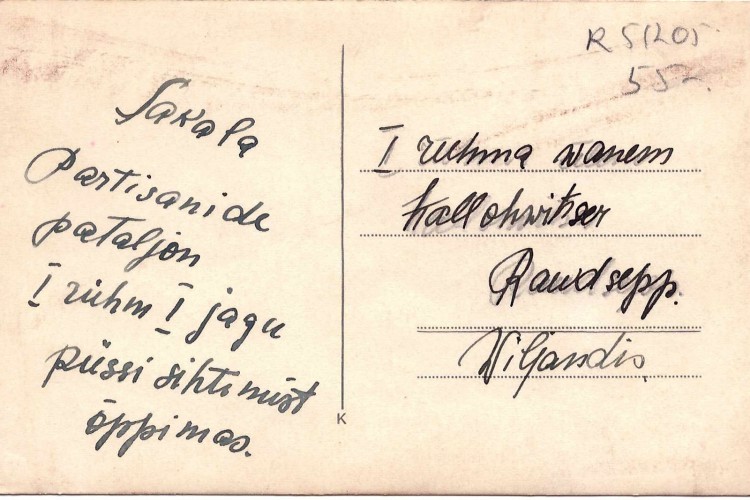 Sakala
Partisanide
pataljon
I rühm I jagu
püssi sihtimist
õppimas.
K
R 51205
55-.
I ruhma wanem
kallohwitser
Raudsepp.
Wiljandis